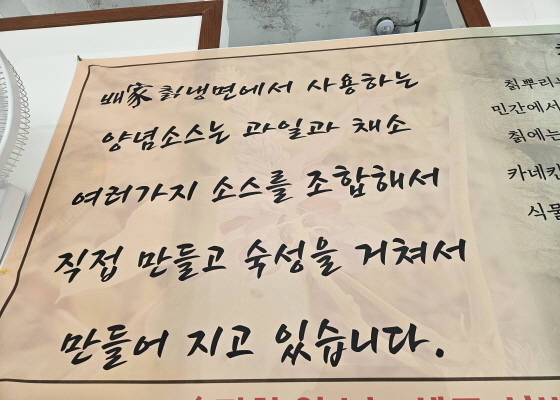 배家 칡냉면에서 사용하는
양념소스는 과일과 채소
여러가지 소스를 조합해서
직접 만들고 숙성을 거쳐서
만들어 지고 있습니다.
칡뿌리
민간에서
칡에는
카네킨
식물